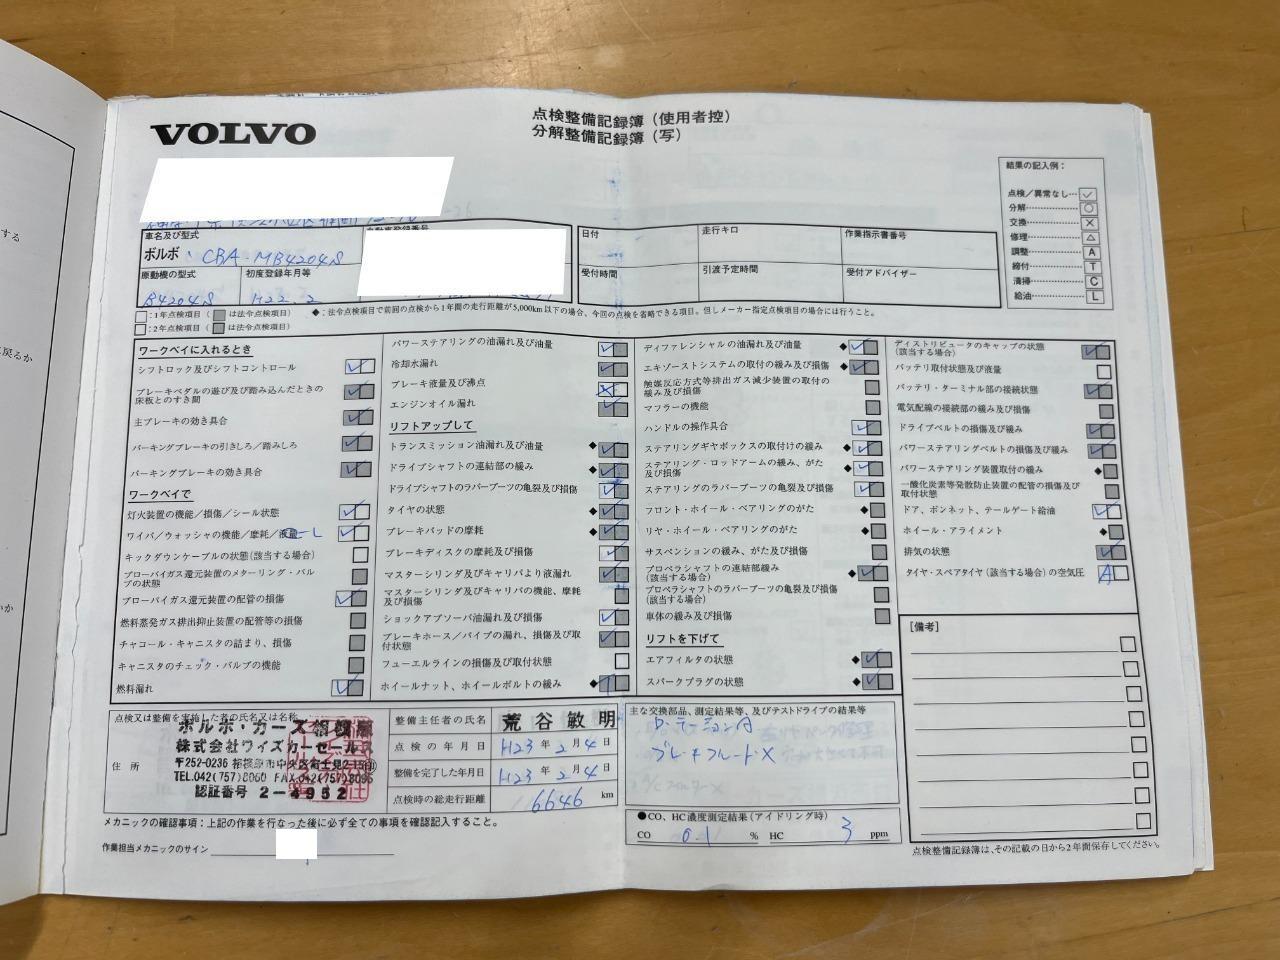 VOLVO
点検整備記録簿（使用者控）
分解整備記録簿（写）
結果の記入例：
点検／異常なし… ✓
分解… ○
交換… ×
修理… △
調整… A
締付… T
清掃… C
給油… L
車名及び型式
ボルボ・CBA-MB4204S
原動機の型式 初度登録年月等
B4204S H22.2
日付 走行キロ 作業指示書番号
受付時間 引渡予定時間 受付アドバイザー
□：1年点検項目（■は法令点検項目） ◆：法令点検項目で前回の点検から1年間の走行距離が5,000km以下の場合、今回の点検を省略できる項目。但しメーカー指定点検項目の場合には行うこと。
□：2年点検項目（■は法令点検項目）
ワークベイに入れるとき
シフトロック及びシフトコントロール
ブレーキペダルの遊び及び踏み込んだときの
床板とのすき間
主ブレーキの効き具合
パーキングブレーキの引きしろ／踏みしろ
パーキングブレーキの効き具合
ワークベイで
灯火装置の機能／損傷／シール状態
ワイパ／ウォッシャの機能／摩耗／液量 L
キックダウンケーブルの状態（該当する場合）
ブローバイガス還元装置のメターリング・バル
ブの状態
ブローバイガス還元装置の配管の損傷
燃料蒸発ガス排出抑止装置の配管等の損傷
チャコール・キャニスタの詰まり、損傷
キャニスタのチェック・バルブの機能
燃料漏れ
パワーステアリングの油漏れ及び油量
冷却水漏れ
ブレーキ液量及び沸点
エンジンオイル漏れ
リフトアップして
トランスミッション油漏れ及び油量 ◆
ドライブシャフトの連結部の緩み ◆
ドライブシャフトのラバーブーツの亀裂及び損傷
タイヤの状態 ◆
ブレーキパッドの摩耗 ◆
ブレーキディスクの摩耗及び損傷
マスターシリンダ及びキャリパより液漏れ
マスターシリンダ及びキャリパの機能、摩耗
及び損傷
ショックアブソーバ油漏れ及び損傷
ブレーキホース／パイプの漏れ、損傷及び取
付状態
フューエルラインの損傷及び取付状態
ホイールナット、ホイールボルトの緩み ◆
ディファレンシャルの油漏れ及び油量 ◆
エキゾーストシステムの取付の緩み及び損傷 ◆
触媒反応方式等排出ガス減少装置の取付の
緩み及び損傷
マフラーの機能
ハンドルの操作具合
ステアリングギヤボックスの取付けの緩み ◆
ステアリング・ロッドアームの緩み、がた ◆
及び損傷
ステアリングのラバーブーツの亀裂及び損傷
フロント・ホイール・ベアリングのがた ◆
リヤ・ホイール・ベアリングのがた ◆
サスペンションの緩み、がた及び損傷
プロペラシャフトの連結部緩み ◆
（該当する場合）
プロペラシャフトのラバーブーツの亀裂及び損傷
（該当する場合）
車体の緩み及び損傷
リフトを下げて
エアフィルタの状態 ◆
スパークプラグの状態 ◆
ディストリビュータのキャップの状態
（該当する場合）
バッテリ取付状態及び液量
バッテリ・ターミナル部の接続状態
電気配線の接続部の緩み及び損傷
ドライブベルトの損傷及び緩み
パワーステアリングベルトの損傷及び緩み
パワーステアリング装置取付の緩み ◆
一酸化炭素等発散防止装置の配管の損傷及び
取付状態
ドア、ボンネット、テールゲート給油
ホイール・アライメント ◆
排気の状態
タイヤ・スペアタイヤ（該当する場合）の空気圧 A
［備考］
点検又は整備を実施した者の氏名又は名称
ボルボ・カーズ相模原
株式会社ワイズカーセールス
住所
〒252-0236 相模原市中央区富士見2-15-10
TEL.042(757)8060 FAX.042(757)8095
認証番号 2-4952
整備主任者の氏名 荒谷敏明
点検の年月日 H23年2月4日
整備を完了した年月日 H23年2月4日
点検時の総走行距離 6646 km
主な交換部品、測定結果等、及びテストドライブの結果等
ローテーション
ブレーキフルード×
●CO、HC濃度測定結果（アイドリング時）
CO 0.1 % HC 3 ppm
メカニックの確認事項：上記の作業を行なった後に必ず全ての事項を確認記入すること。
作業担当メカニックのサイン
点検整備記録簿は、その記載の日から2年間保存してください。